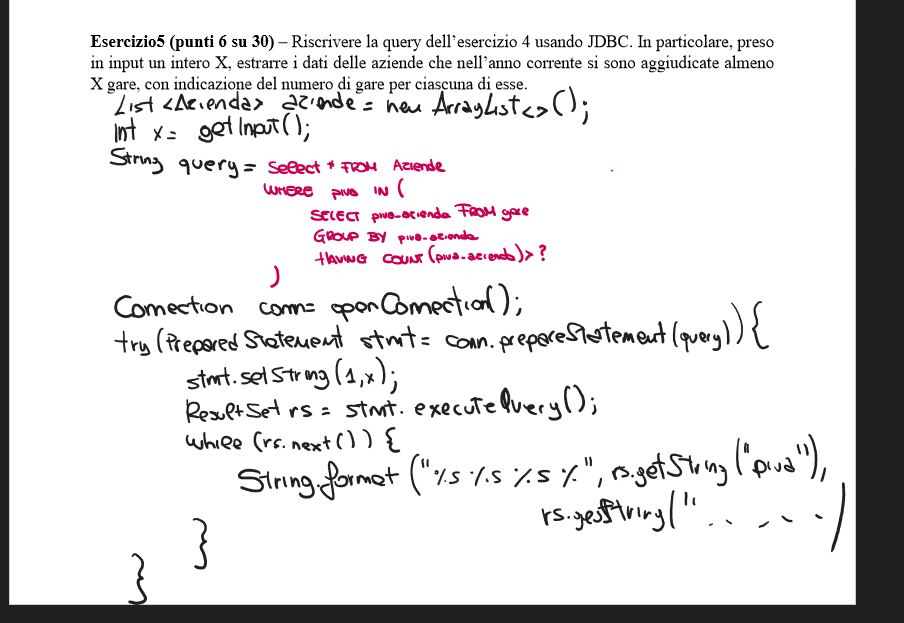 Esercizio5 (punti 6 su 30) – Riscrivere la query dell'esercizio 4 usando JDBC. In particolare, preso
in input un intero X, estrarre i dati delle aziende che nell'anno corrente si sono aggiudicate almeno
X gare, con indicazione del numero di gare per ciascuna di esse.
List <Azienda> aziende = new ArrayList<>();
Int x = getInput();
String query = Select * FROM Aziende
WHERE piva IN (
SELECT piva-azienda FROM gare
GROUP BY piva-azienda
HAVING COUNT (piva-azienda) > ?
)
Connection conn = openConnection();
try (Prepared Statement stmt = conn.prepareStatement (query)) {
stmt.setString (1,x);
ResultSet rs = stmt. executeQuery();
while (rs.next()) {
String.format ("%s %s %s %", rs.getString ("piva"),
rs.getString(" . . . . . )
}
}